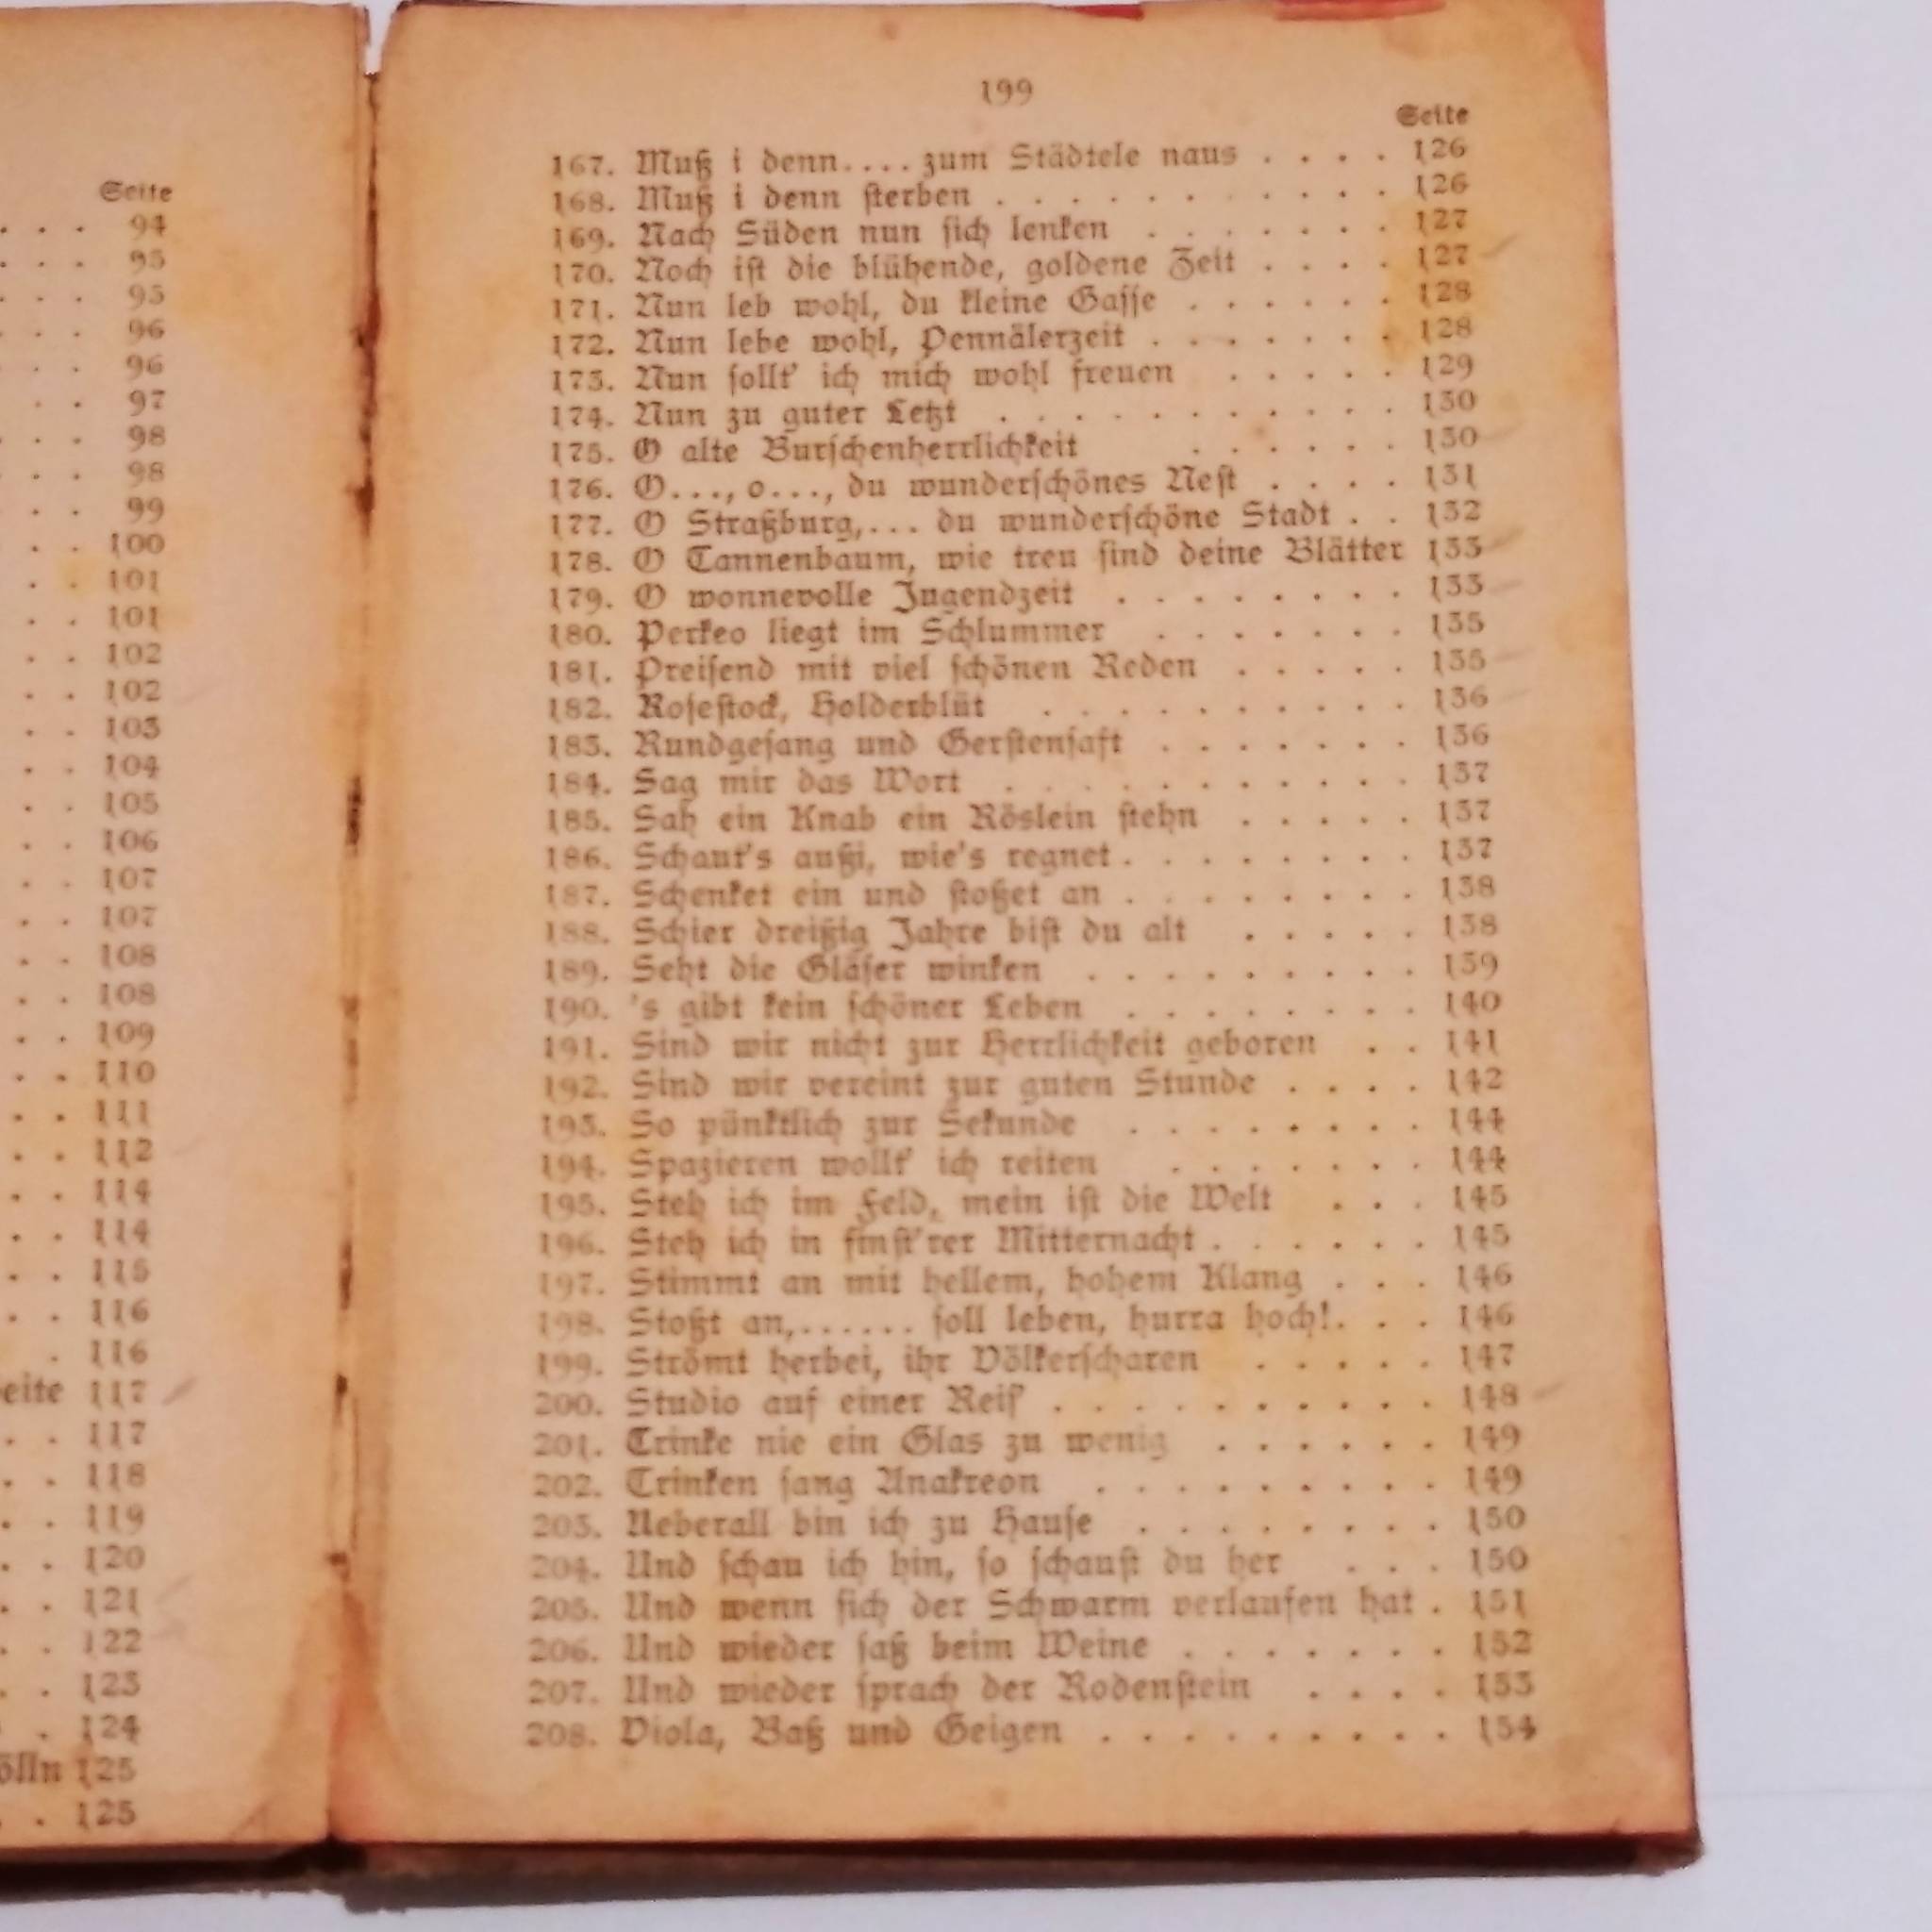 Seite
. . . 94
. . . 95
. . . 95
. . 96
. . . 96
. . 97
. . . 98
. . . 98
. . . 99
. . 100
. . 101
. . 101
. . 102
. . 102
. . 103
. . 104
. . 105
. . 106
. . 107
. . 107
. . 108
. . 108
. . 109
. . 110
. . 111
. . 112
. . 114
. . 114
. . 115
. . 116
. 116
eite 117
. . 117
. . 118
. . 119
. . 120
. . 121
. . 122
. . 123
. 124
ölln 125
. . 125
199
Seite
167. Muß i denn.... zum Städtele naus . . . . 126
168. Muß i denn sterben . . . . . . . . . . . 126
169. Nach Süden nun sich lenken . . . . . . . 127
170. Noch ist die blühende, goldene Zeit . . . . 127
171. Nun leb wohl, du kleine Gasse . . . . . . 128
172. Nun lebe wohl, Pennälerzeit . . . . . . . 128
173. Nun sollt' ich mich wohl freuen . . . . . 129
174. Nun zu guter Letzt . . . . . . . . . . . 130
175. O alte Burschenherrlichkeit . . . . . . 130
176. O..., o..., du wunderschönes Nest . . . . 131
177. O Straßburg,... du wunderschöne Stadt . . 132
178. O Tannenbaum, wie treu sind deine Blätter 133
179. O wonnevolle Jugendzeit . . . . . . . . 133
180. Perkeo liegt im Schlummer . . . . . . . 135
181. Preisend mit viel schönen Reden . . . . . 135
182. Rosestock, Holderblüt . . . . . . . . . . 136
183. Rundgesang und Gerstensaft . . . . . . . 136
184. Sag mir das Wort . . . . . . . . . . . 137
185. Sah ein Knab ein Röslein stehn . . . . . 137
186. Schaut's außi, wie's regnet . . . . . . . . 137
187. Schenket ein und stoßet an . . . . . . . . 138
188. Schier dreißig Jahre bist du alt . . . . . 138
189. Seht die Gläser winken . . . . . . . . . 139
190. 's gibt kein schöner Leben . . . . . . . . 140
191. Sind wir nicht zur Herrlichkeit geboren . . 141
192. Sind wir vereint zur guten Stunde . . . . 142
193. So pünktlich zur Sekunde . . . . . . . . 144
194. Spazieren wollt' ich reiten . . . . . . . 144
195. Steh ich im Feld, mein ist die Welt . . . 145
196. Steh ich in finst'rer Mitternacht . . . . . . 145
197. Stimmt an mit hellem, hohem Klang . . . 146
198. Stoßt an,...... soll leben, hurra hoch!. . . 146
199. Strömt herbei, ihr Völkerscharen . . . . . 147
200. Studio auf einer Reis' . . . . . . . . . . 148
201. Trinke nie ein Glas zu wenig . . . . . . 149
202. Trinken sang Anakreon . . . . . . . . . 149
203. Ueberall bin ich zu Hause . . . . . . . . 150
204. Und schau ich hin, so schaust du her . . . 150
205. Und wenn sich der Schwarm verlaufen hat . 151
206. Und wieder saß beim Weine . . . . . . . 152
207. Und wieder sprach der Rodenstein . . . . 153
208. Viola, Baß und Geigen . . . . . . . . . 154